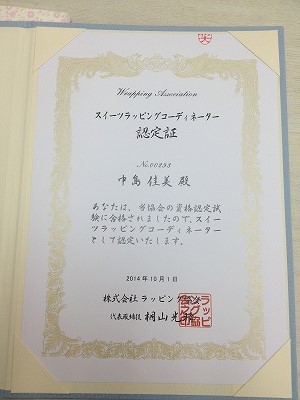 Wrapping Association
スイーツラッピングコーディネーター
認定証
No.00233
中島 佳美 殿
あなたは、当協会の資格認定試
験に合格されましたので、スイー
ツラッピングコーディネーター
として認定いたします。
2014年10月1日
株式会社 ラッピング協会
代表取締役 桐山